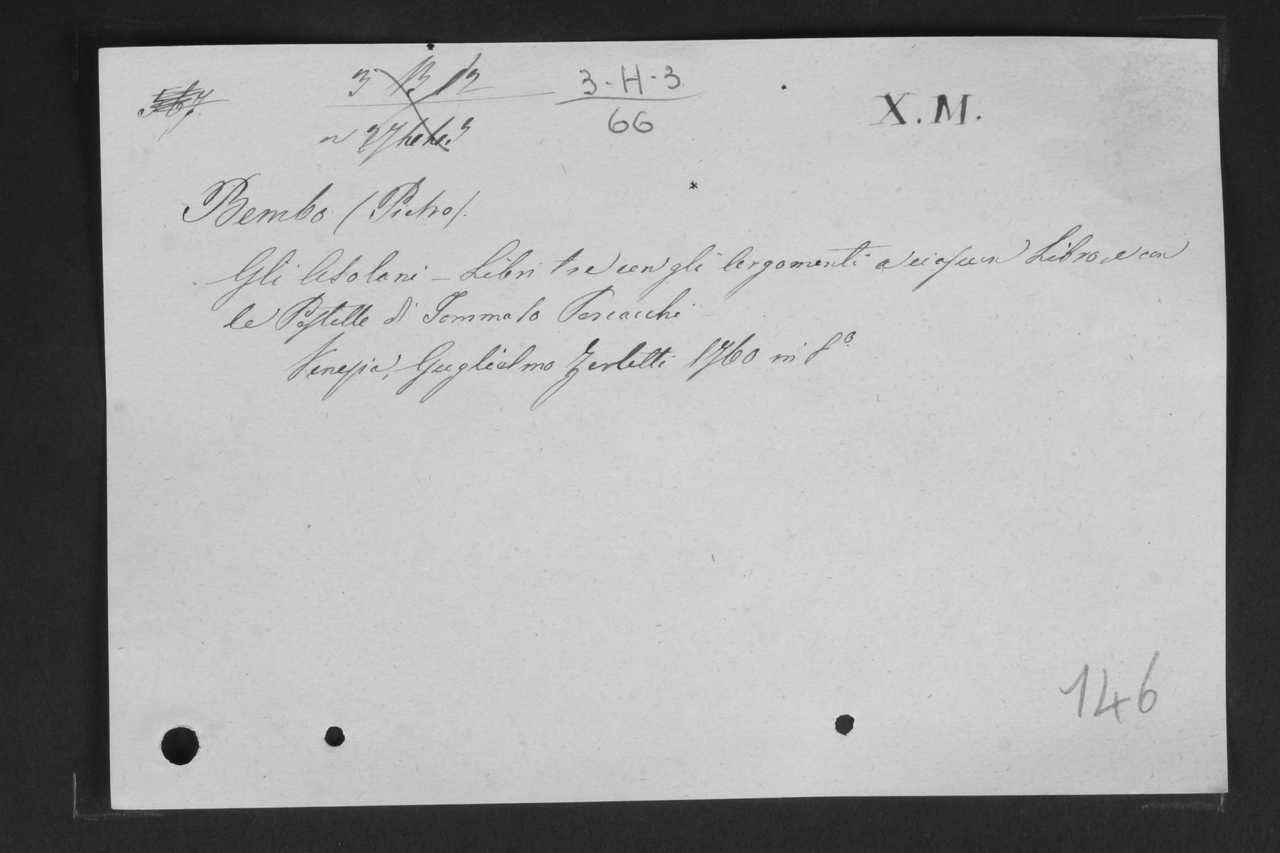 567
3 B 12
3-H-3
66
X.M.
Bembo (Pietro).
Gli Asolani - Libri tre con gli Argomenti a ciascun Libro, e con
le Postille di Tommaso Porcacchi
Venezia, Guglielmo Zerletti 1760 in 8º
146